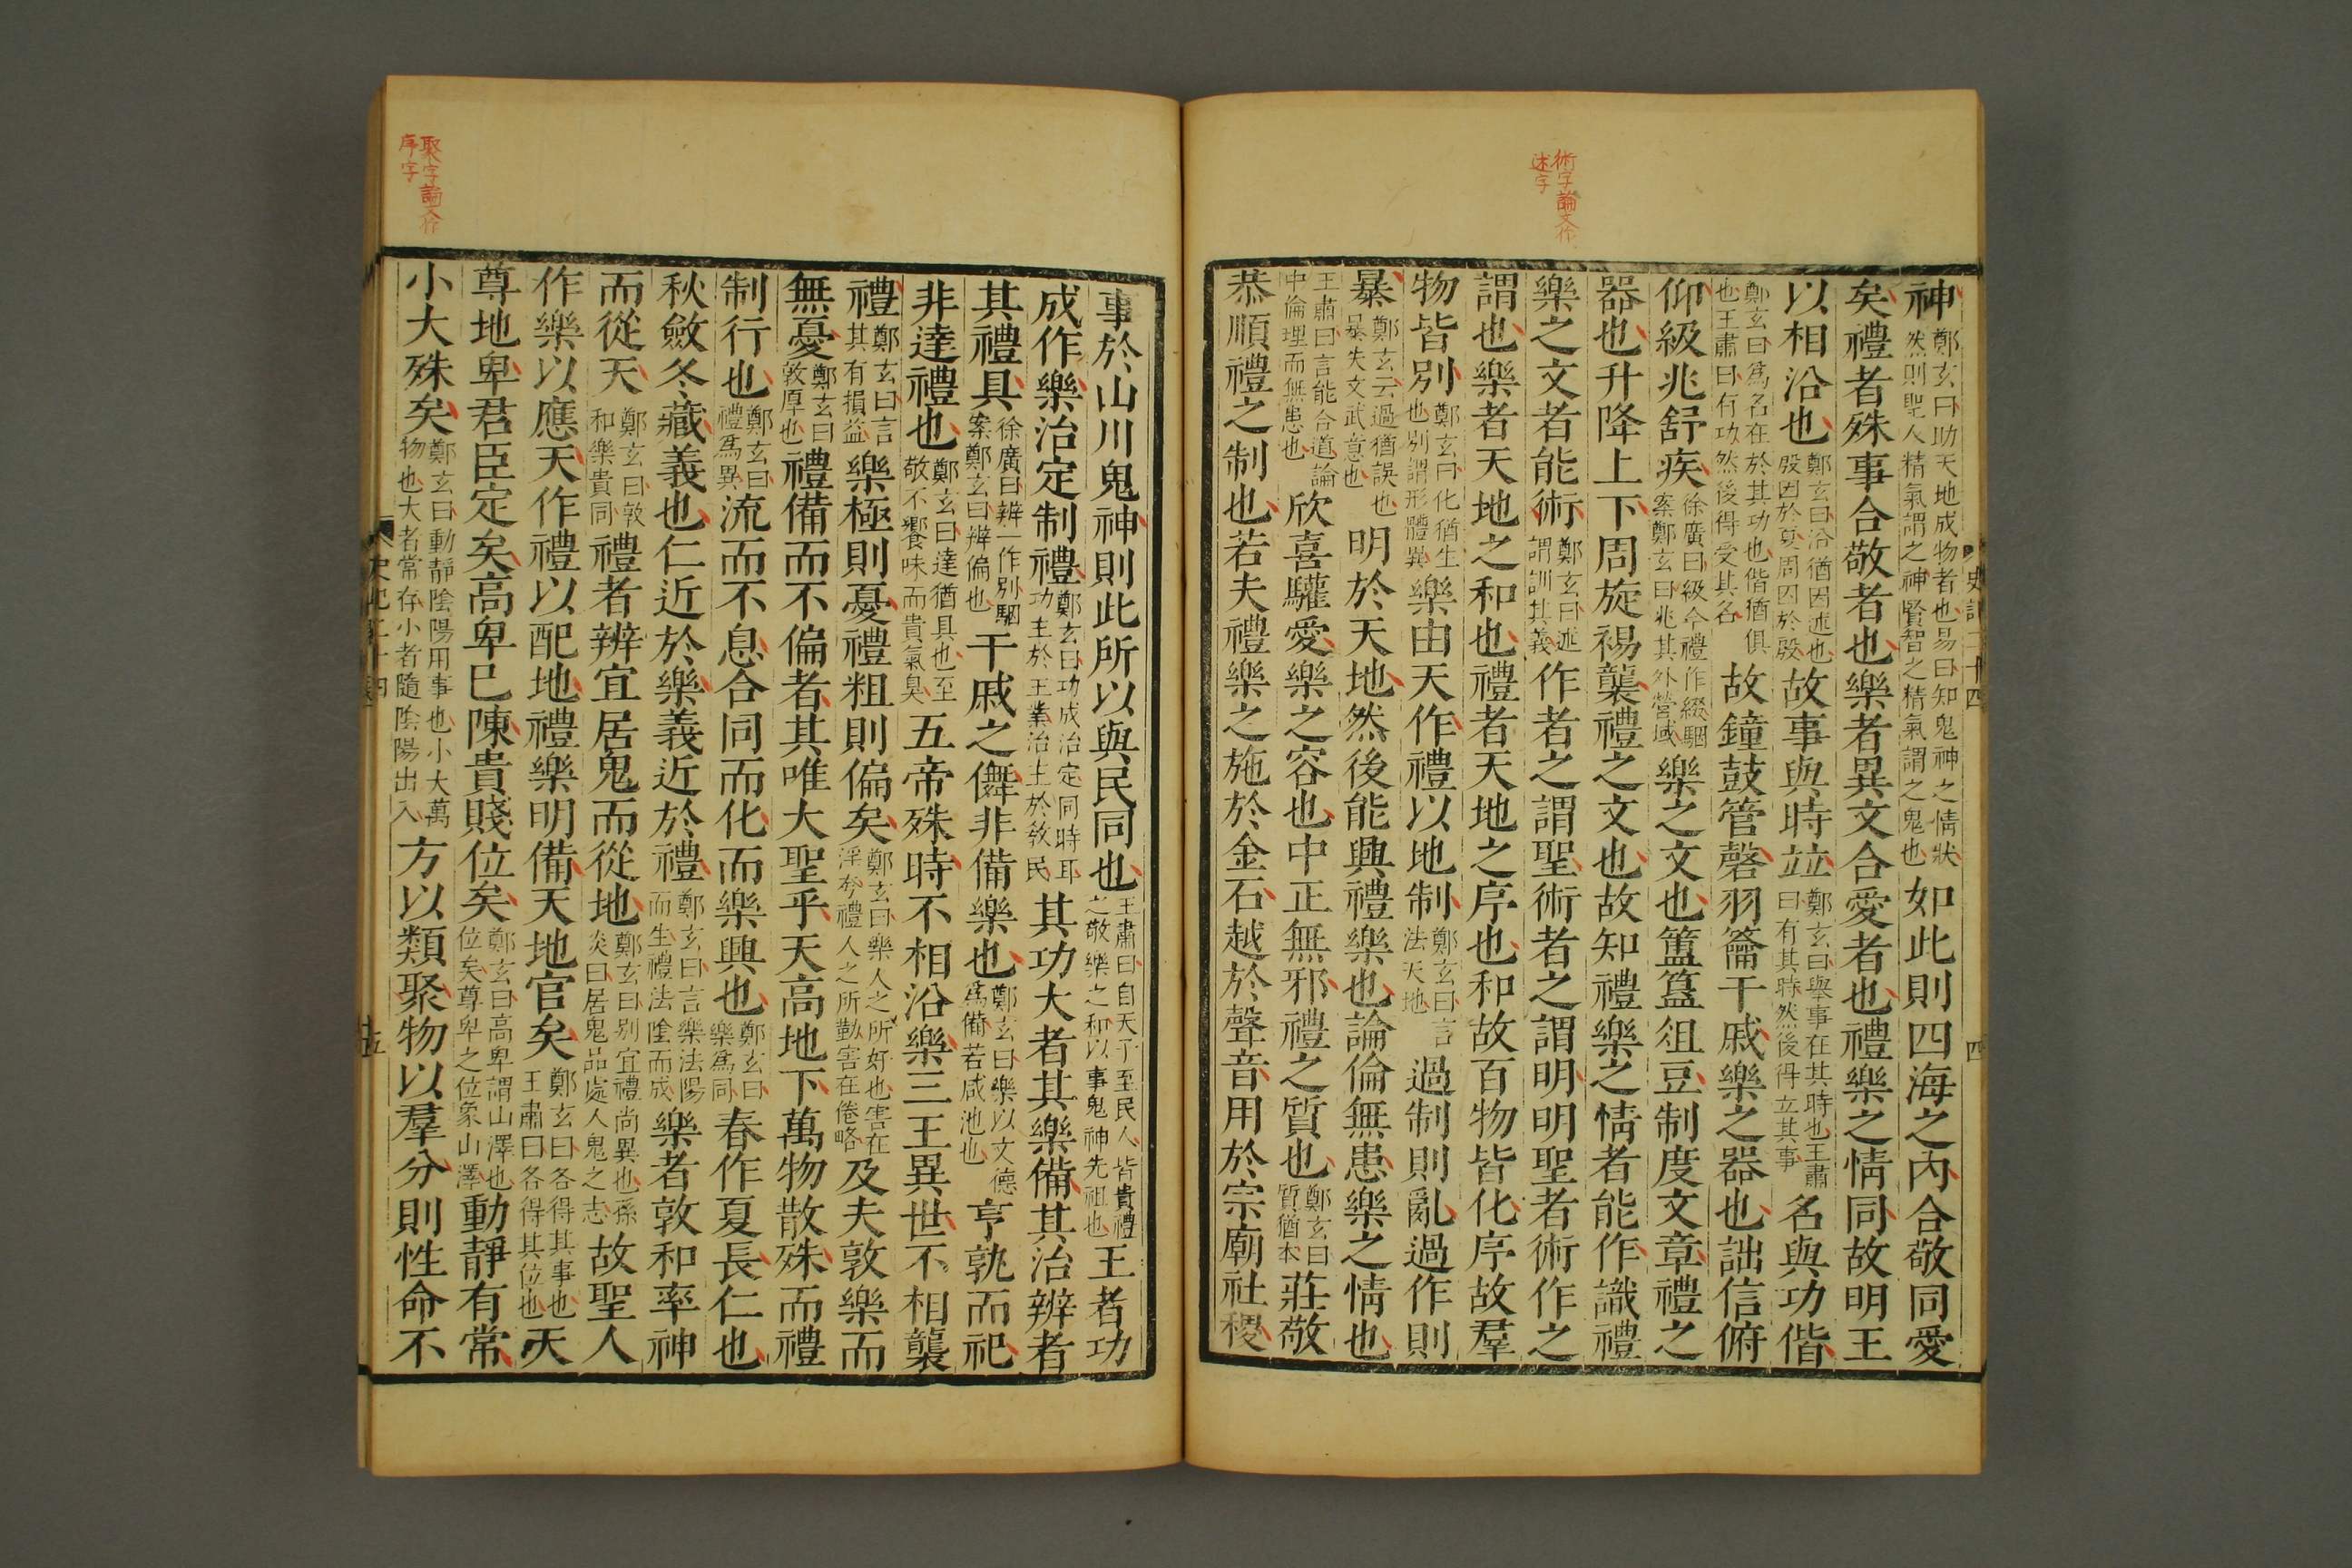 術字論文作
述字
神鄭玄曰助天地成物者也易曰知鬼神之情狀然則聖人精氣謂之神賢智之精氣謂之鬼也如此則四海之內合敬同愛
矣禮者殊事合敬者也樂者異文合愛者也禮樂之情同故明王
以相沿也鄭玄曰沿猶因述也殷因於夏周因於殷故事與時竝鄭玄曰舉事在其時也王肅曰有其時然後得立其事名與功偕
鄭玄曰爲名在於其功也偕猶俱也王肅曰有功然後得受其名故鐘鼓管磬羽籥干戚樂之器也詘信俯
仰級兆舒疾徐廣曰級今禮作綴駰案鄭玄曰兆其外營域樂之文也簠簋俎豆制度文章禮之
器也升降上下周旋裼襲禮之文也故知禮樂之情者能作識禮
樂之文者能術鄭玄曰述謂訓其義作者之謂聖術者之謂明明聖者術作之
謂也樂者天地之和也禮者天地之序也和故百物皆化序故羣
物皆別鄭玄曰化猶生也別謂形體異樂由天作禮以地制鄭玄曰言法天地過制則亂過作則
暴鄭玄云過猶誤也暴失文武意也明於天地然後能興禮樂也論倫無患樂之情也
王肅曰言能合道論中倫理而無患也欣喜驩愛樂之容也中正無邪禮之質也鄭玄曰質猶本莊敬
恭順禮之制也若夫禮樂之施於金石越於聲音用於宗廟社稷
史記二十四
四
聚字論文作
序字
事於山川鬼神則此所以與民同也王肅曰自天子至民人皆貴禮之敬樂之和以事鬼神先祖也王者功
成作樂治定制禮鄭玄曰功成治定同時耳功主於王業治主於敎民其功大者其樂備其治辨者
其禮具徐廣曰辨一作別駰案鄭玄曰辨徧也干戚之儛非備樂也鄭玄曰樂以文德爲備若咸池也亨孰而祀
非達禮也鄭玄曰達猶具也至敬不饗味而貴氣臭五帝殊時不相沿樂三王異世不相襲
禮鄭玄曰言其有損益樂極則憂禮粗則偏矣鄭玄曰樂人之所好也害在淫夸禮人之所勤害在倦略及夫敦樂而
無憂鄭玄曰敦厚也禮備而不偏者其唯大聖乎天高地下萬物散殊而禮
制行也鄭玄曰禮爲異流而不息合同而化而樂興也鄭玄曰樂爲同春作夏長仁也
秋斂冬藏義也仁近於樂義近於禮鄭玄曰言樂法陽而生禮法陰而成樂者敦和率神
而從天鄭玄曰敦和樂貴同禮者辨宜居鬼而從地鄭玄曰别宜禮尚異也孫炎曰居鬼品處人鬼之志故聖人
作樂以應天作禮以配地禮樂明備天地官矣鄭玄曰各得其事也王肅曰各得其位也天
尊地卑君臣定矣高卑巳陳貴賤位矣鄭玄曰高卑謂山澤也位矣尊卑之位象山澤動靜有常
小大殊矣鄭玄曰動靜陰陽用事也小大萬物也大者常存小者隨陰陽出入方以類聚物以羣分則性命不
史記二十四
十五